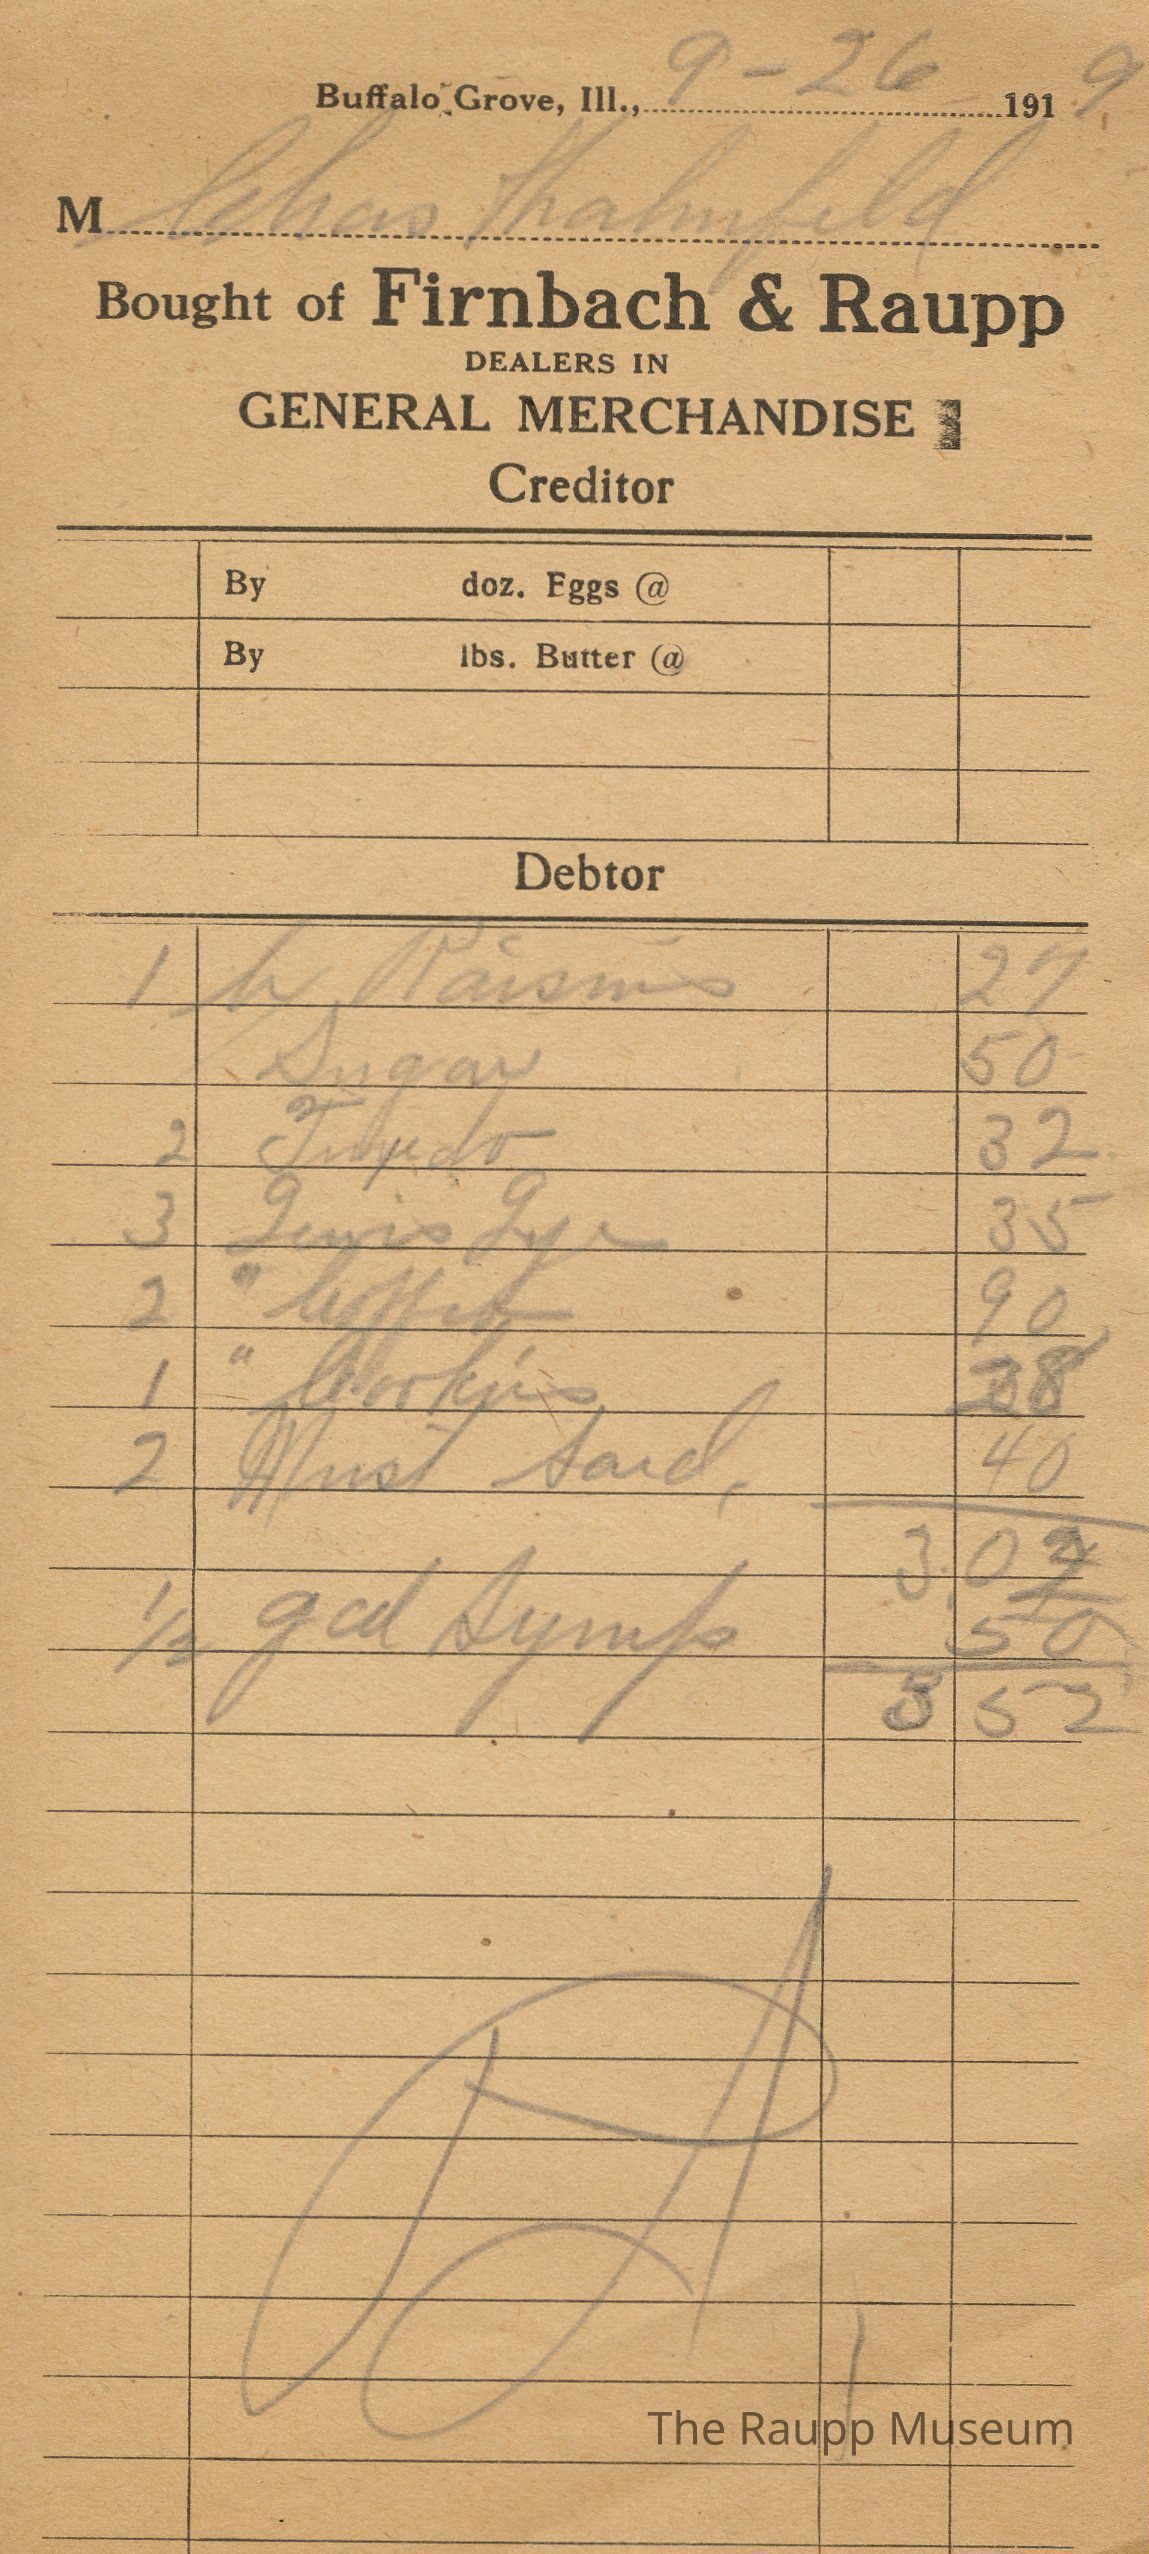 Buffalo Grove, Ill., 9-26 1919
M Chas Thalmfeld
Bought of Firnbach & Raupp
DEALERS IN
GENERAL MERCHANDISE
Creditor
By doz. Eggs @
By lbs. Butter @
Debtor
1 lb Raisins 27
Sugar 50
2 Tuxedo 32
3 Lewis Lye 35
2 " Coffee 90
1 " Cookies 28
2 Must Sard. 40
3.02
1/2 gal Syrup 50
3 52
The Raupp Museum